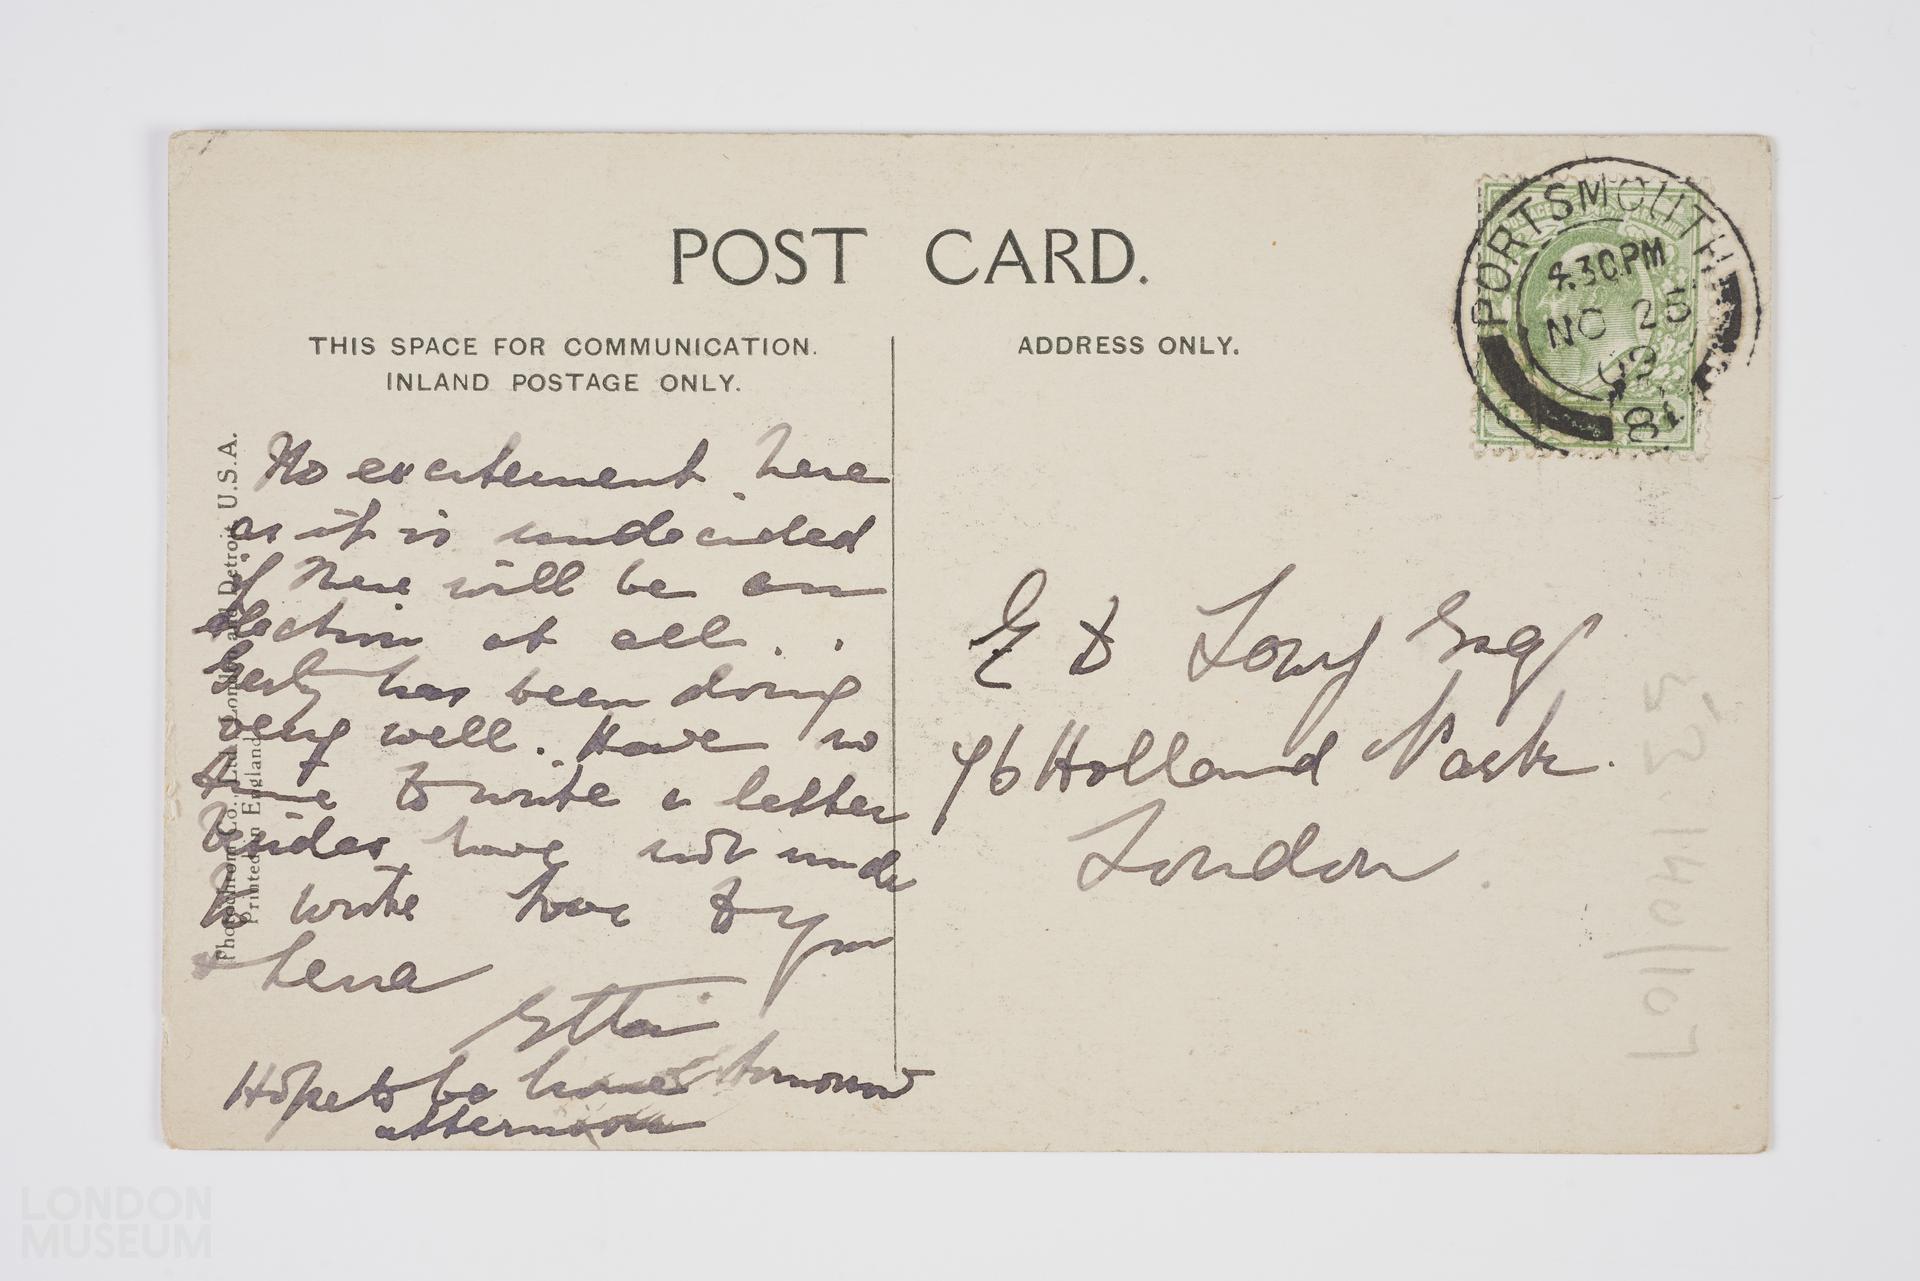 POST CARD.
THIS SPACE FOR COMMUNICATION.
INLAND POSTAGE ONLY.
ADDRESS ONLY.
PORTSMOUTH
8.30PM
NO 25
09
Photochrom Co., Ltd., London and Detroit U.S.A.
Printed in England
No excitement here
as it is undecided
if there will be an
election at all . .
Gerty has been doing
very well. Have no
time to write a letter
besides have not
to write love to you
+ Lena
Etta
Hope to be home tomorrow
afternoon
E D Lowy Esq
76 Holland Park.
London.
LONDON
MUSEUM